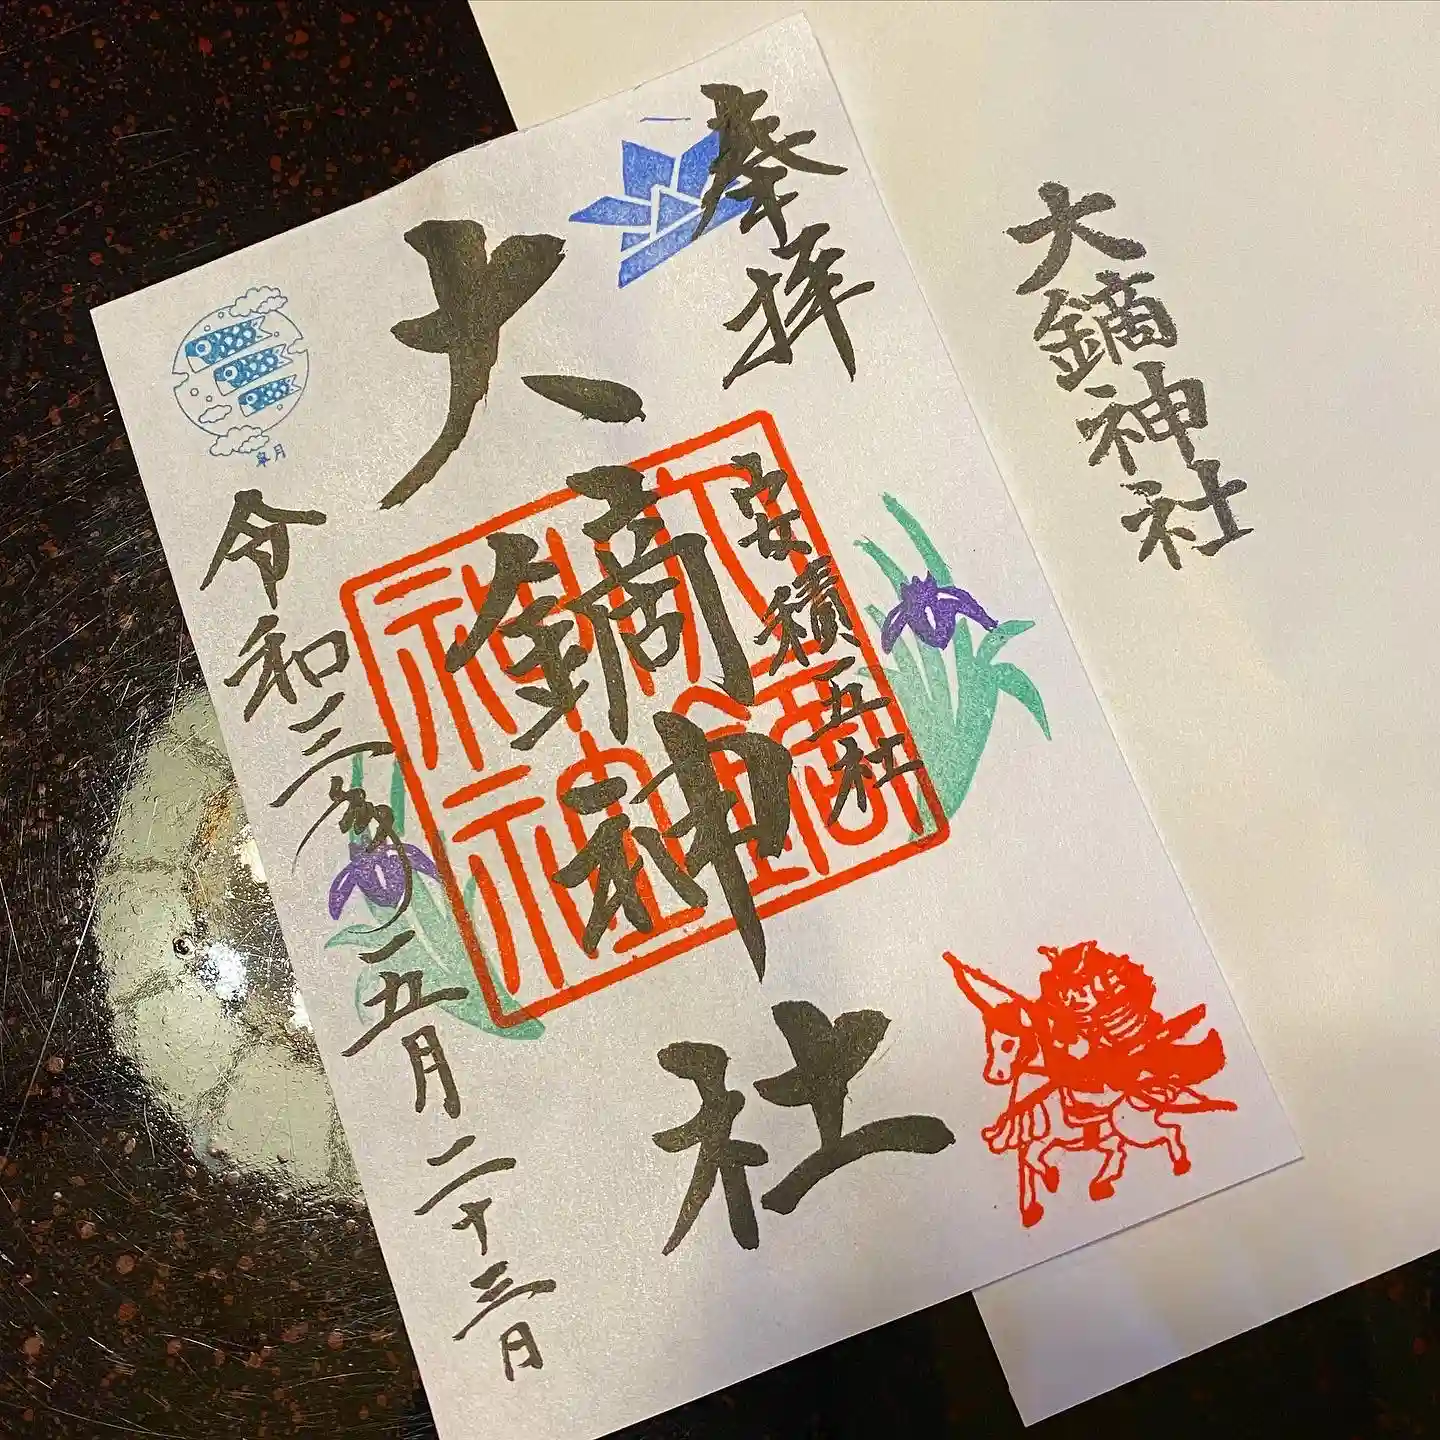 奉拝
安積五社
大鏑神社
令和三年五月二十三日
皐月
大鏑神社